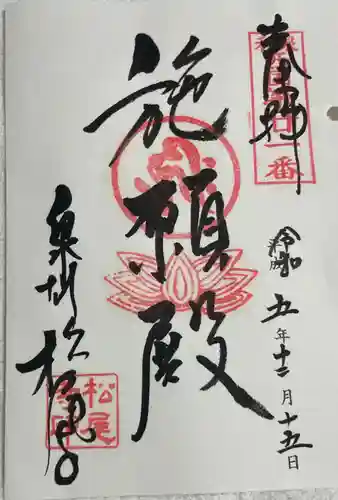 奉拝
一番
令和五年十二月十五日
施願殿
泉州松尾寺
松尾